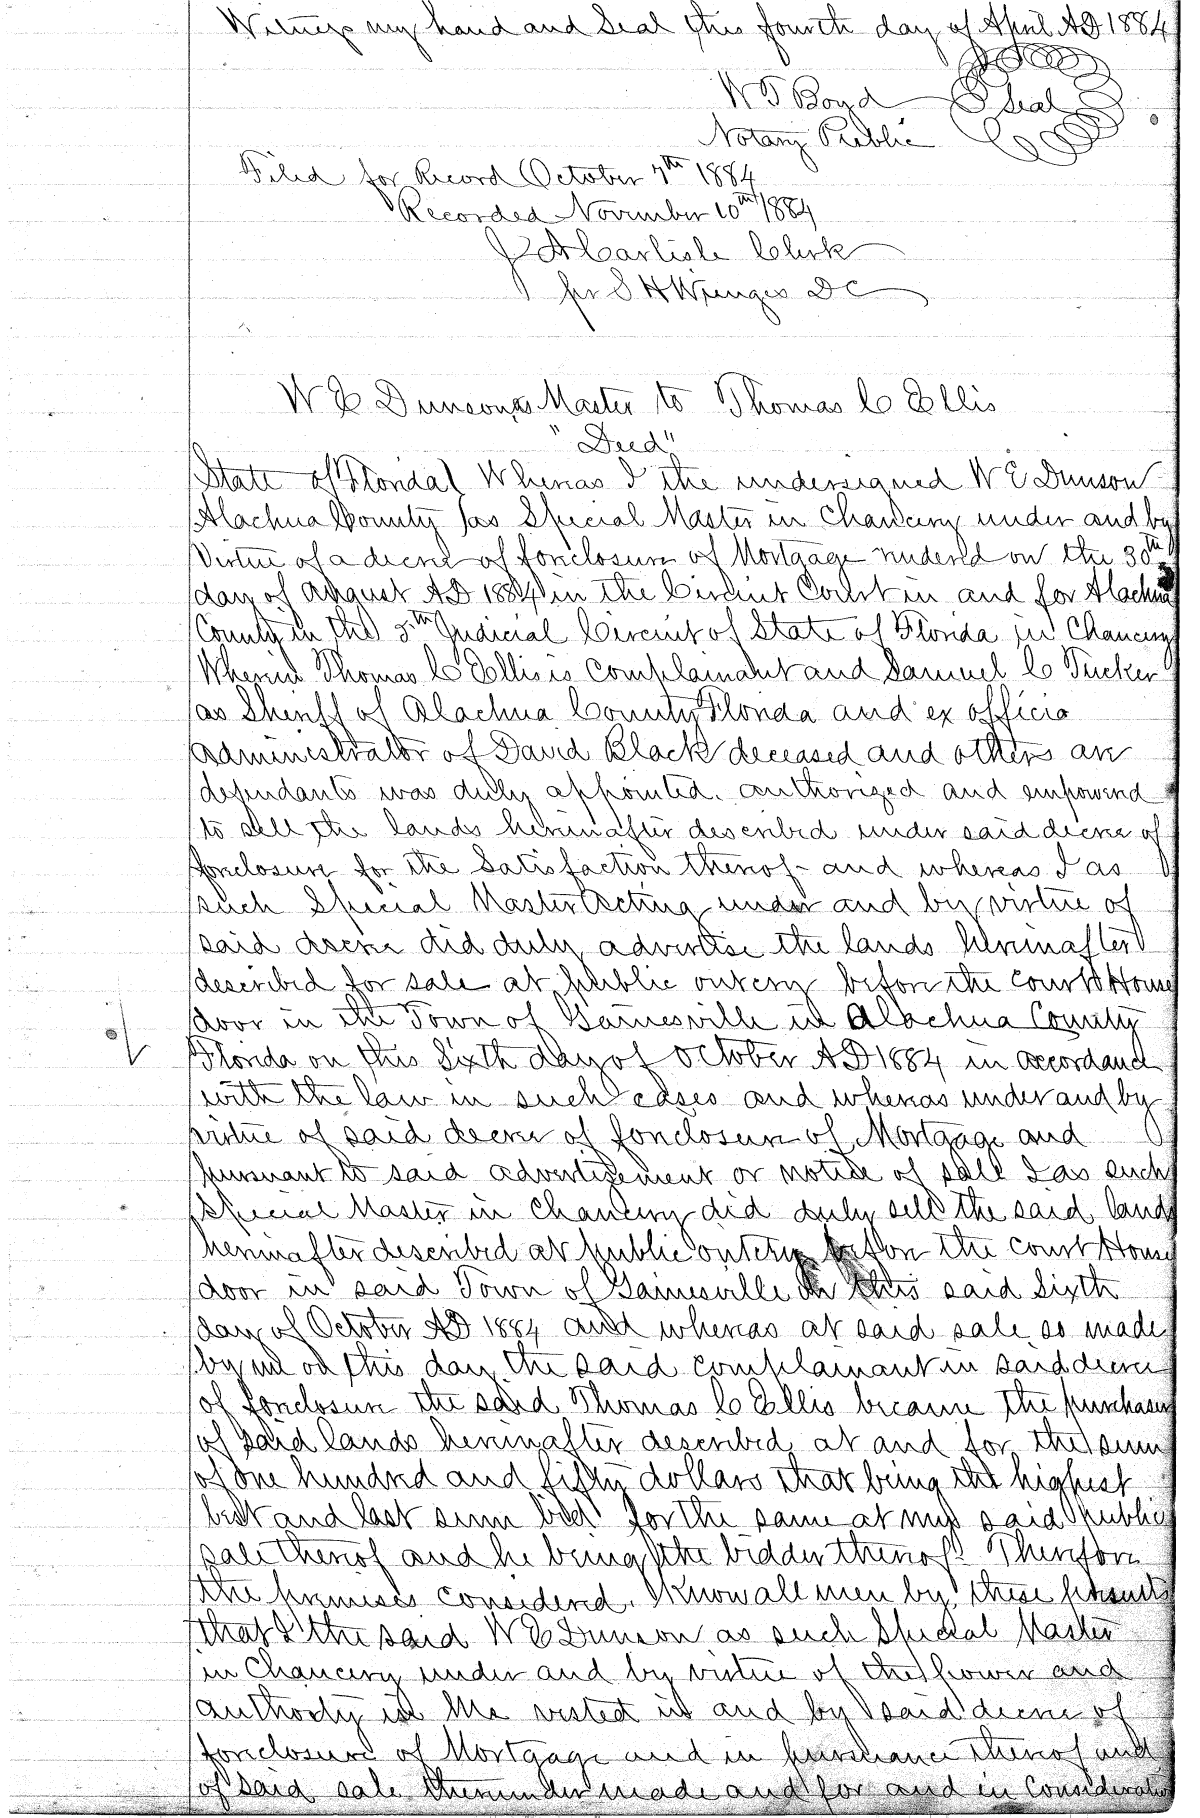 Witness my hand and Seal this fourth day of April AD 1884
W T Boyd Seal
Notary Public
Filed for Record October 7th 1884
Recorded November 10th 1884
J A Carlisle Clerk
per S H Wienges DC
W E Dunson as Master to Thomas C Ellis
"Deed"
State of Florida ( Whereas I the undersigned W E Dunson
Alachua County ( as Special Master in Chancery under and by
Virtue of a decree of foreclosure of Mortgage rendered on the 30th
day of August AD 1884 in the Circuit Court in and for Alachua
County in the 5th Judicial Circuit of State of Florida in Chancery
Wherein Thomas C Ellis is Complainant and Samuel C Tucker
as Sheriff of Alachua County Florida and ex officio
administrator of David Black deceased and others are
defendants was duly appointed. authorized and empowered
to sell the lands hereinafter described under said decree of
foreclosure for the Satisfaction thereof - and whereas I as
such Special Master Acting under and by virtue of
said decree did duly advertise the lands hereinafter
described for sale at public outcry before the Court House
door in the Town of Gainesville in Alachua County
Florida on this Sixth day of October AD 1884 in accordance
with the law in such cases and whereas under and by
virtue of said decree of foreclosure of Mortgage and
pursuant to said advertizement or notice of sale I as such
Special Master in Chancery did duly sell the said lands
hereinafter described at public outcry before the court House
door in said Town of Gainesville on this said Sixth
day of October AD 1884 and whereas at said sale so made
by me on this day the said complainant in said decree
of foreclosure the said Thomas C Ellis became the purchaser
of said lands hereinafter described at and for the sum
of one hundred and fifty dollars that being the highest
best and last sum bid for the same at my said public
sale thereof and he being the bidder thereof. Therefore
the premises considered. Know all men by these presents
that I the said W E Dunson as such Special Master
in Chancery under and by virtue of the power and
authority in Me vested in and by said decree of
foreclosure of Mortgage and in pursuance thereof and
of said sale thereunder made and for and in Consideration